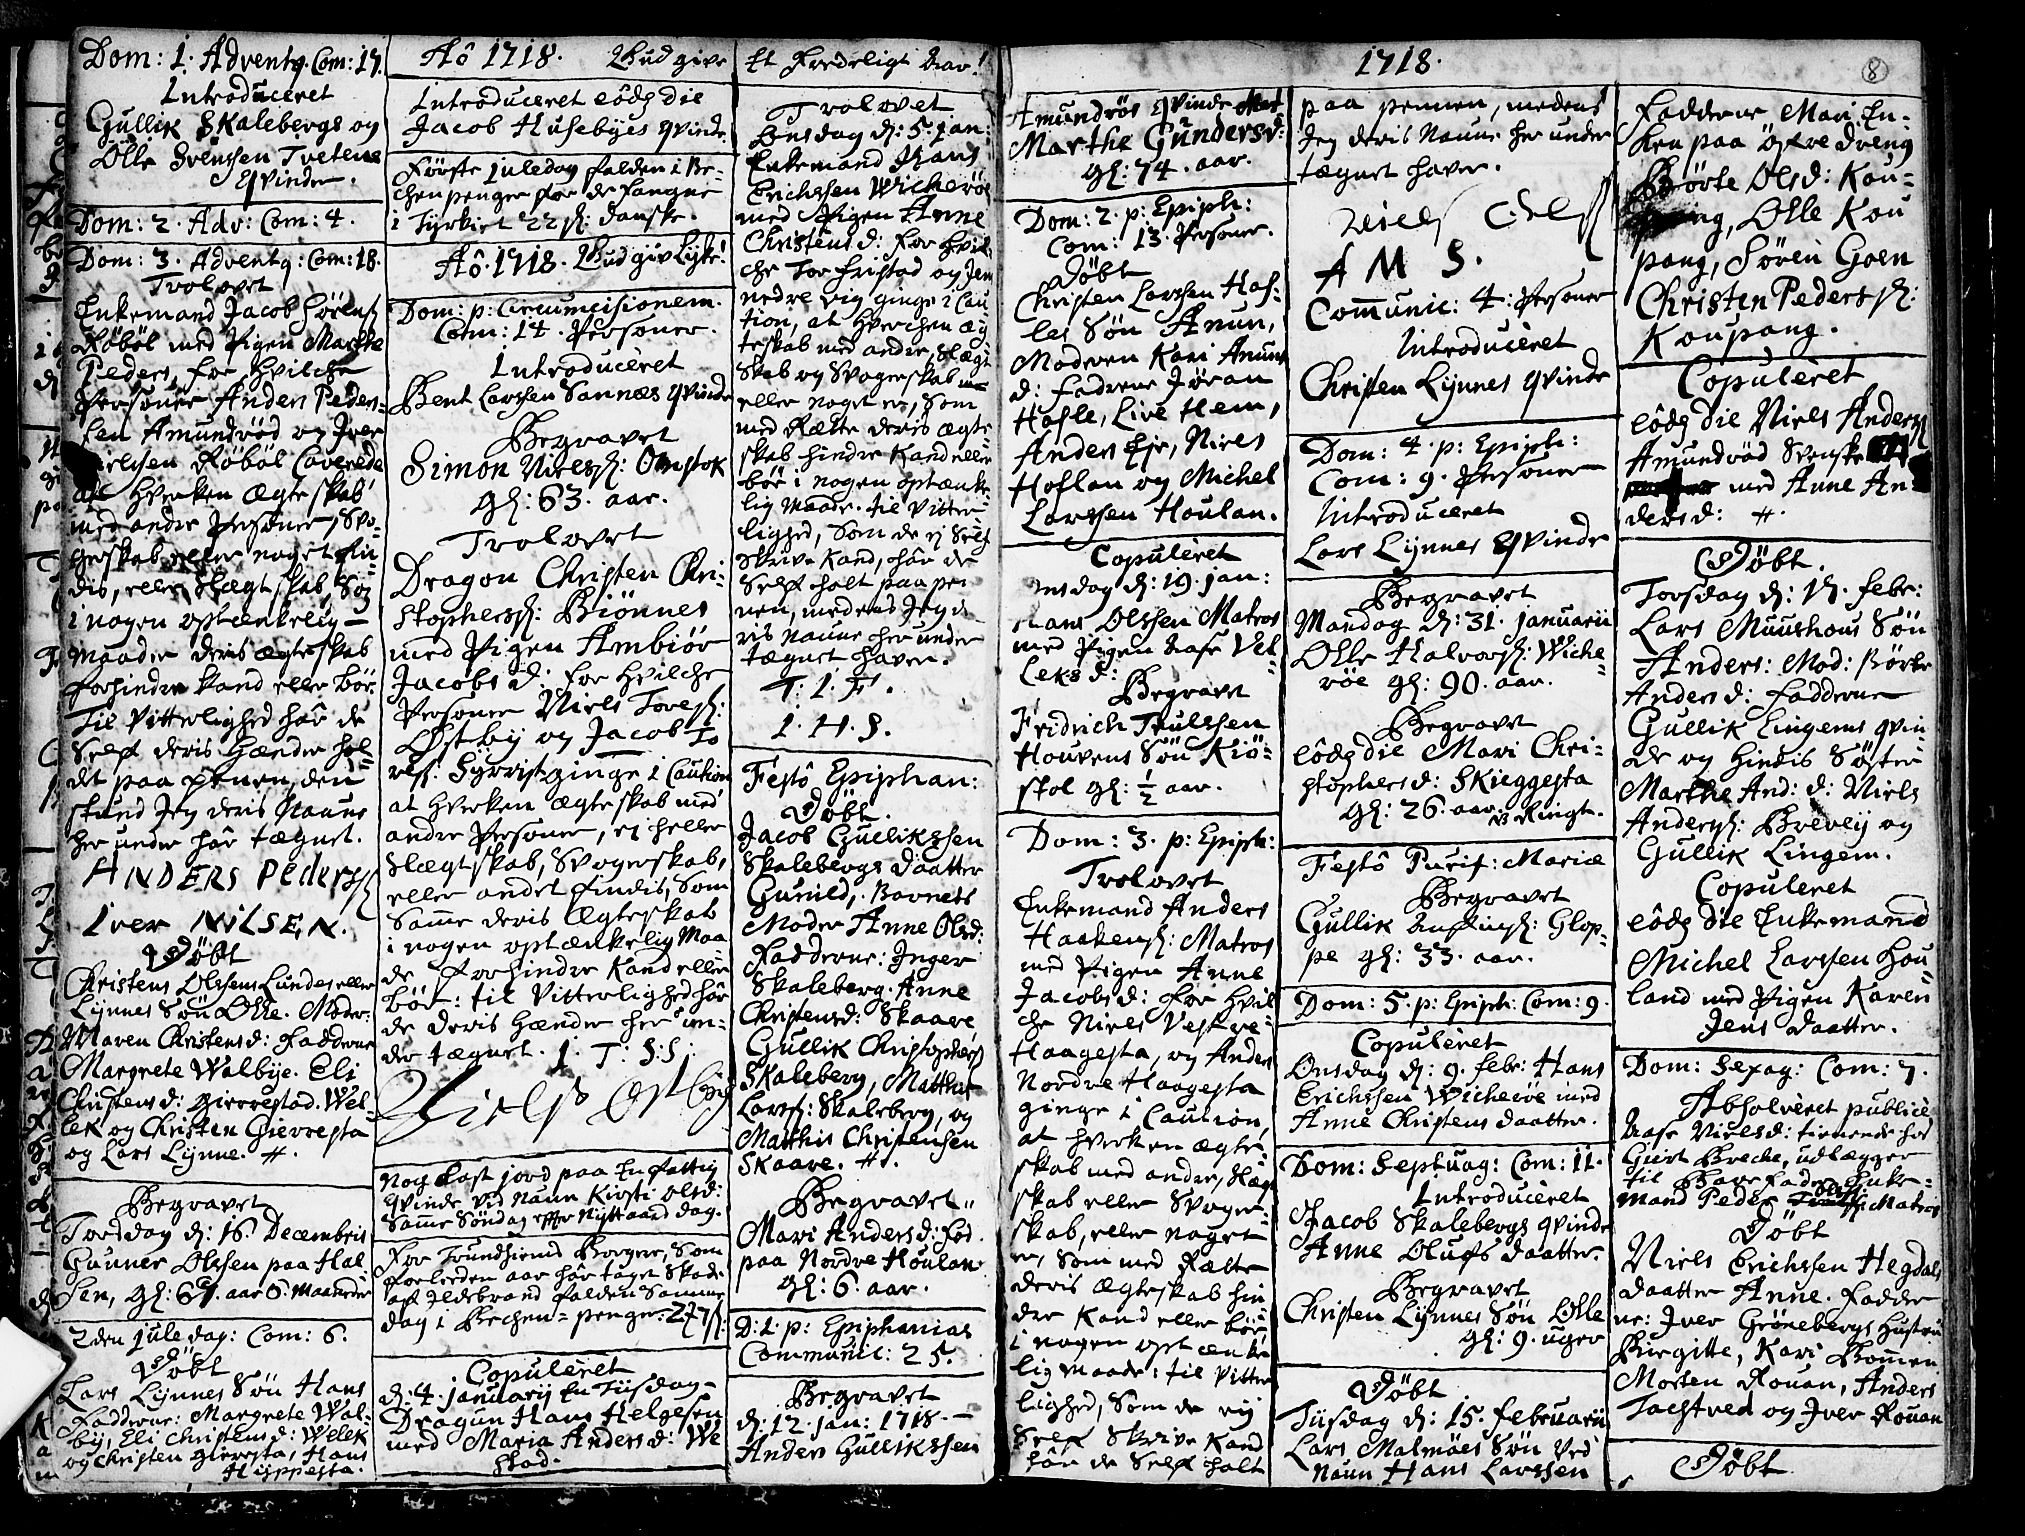 Dom: 1. Adventq. Com: 17.
Introduceret
Gullik Skalebergs og
Olle Svenssen Tvetene
Qvinder.
Dom: 2. Adv: Com: 4.
Dom: 3. Adventq: Com: 18.
Trolovet
Enkemand Jacob Sörens
Röböl med Pigen Marthe
Peders, for hvilche
Personer Anders Peders-
sen Amundröd og Iver
Nielssen Röböl Caverede
att hverken Ægteskab
med andre Personer, Svo-
gerskab eller noget fin-
dis, eller Slegtskab, Som
i nogen optænkelig
maader deris ægteskab
forhindre kand eller bör.
Til Vitterlighed hâr de
Self deris Hænder hol-
det paa penen, den
stund Jeg deris Naune
her under hâr tægnet.
ANDERS Pederss
Iver NilSEN.
Döbt
Christens Olssens Lundes eller
Lynnes Sön Olle. Moder:
Maren Christensd: Fadderne
Margrete Walbye. Eli
Christensd: gierrestad. Wel-
lek og Christen Gierresta
og Lars Lynne. #.
Begravet
Torsdag d: 16. Decembris
Gunner Olssen paa Hal
sen, gl: 67. aar 6. Maaneder
2den juledag: Com: 6.
Döbt
Lars Lynnes Sön Hans
Fadderne: Margrete Wal-
by, Eli Christensd: Welek
og Christen gierresta, Hans
Hippesta.
Aô 1718. Gud give
Introduceret eôdq die
Jacob Husebyes qvinde
Förste juledag falden i Be-
chenpenger for de fangne
i Tyrkiet 22 s: danske.
Aô. 1718. Gud giv Lyke!
Dom: p: Circumcisionem.
Com: 14 Personer.
Introduceret
Bent Larssen Sannæs qvinde
Begravet
Simon Nielss: Omstok
gl: 63. aar.
Trolovet
Dragon Christen Chri-
stophers: Biönnes
med Pigen Ambiör
Jacobsd: for hvilche
Personer Niels Tores:
Östby og Jacob To
ress. Syrrist ginge i Caution
at hverken ægteskab med
andre Personer, ej heller
Slegtskab, Svogerskab,
eller andet findis, Som
Samme deris Ægteskab
i nogen optænkelig Maa
de forhindre Kand eller
bör: til Vitterlighed hâr
de deris Hænder her un-
der tægnet. I. T: S: S:
Niels Ostby
Nog kast jord paa En fattig
qvinde ved Naun Kirsti Olsd:
Samme Söndag effter Nyttaars dag.
For Trundhiems Borgere, Som
forleden aar hâr taget Skade
af Ildebrand falden Samme
dag i Bechen-penger: 27 s:
Copuleret
d: 4. januarij En Tiisdag
Dragun Hans Helgesen
med Maria Andersd: We
stad.
Et Fredeligt aar!
Trolovet
Onsdag d: 5. jan:
Enkemand Hans
Erichssen Wicheröe
med Pigen Anne
Christensd: for hvil-
che Tor fristad og Jens
nedre vig ginge i Cau
tion, at hverchen æg
teskab med andre, Slægt
skab og Svogerskab
eller noget er, Som
med Rætte deris ægte
skab hindre Kand eller
bör i nogen optænke-
lig Maade. til Vitter-
lighed, Som de ej Self
skrive Kand, hâr de
Self holt paa pen
nen, medens Jeg de
ris naune her under
tægnet haver.
T. I. F.
I. H. S.
Festô Epiphan:
Döbt.
Jacob Gullikssen
Skalebergs daatter
Gunild, Barnets
Moder Anne Olsd:
Fadderne: Inger
Skaleberg. Anne
Christensd: Skaare
Gullik Christophers
Skaleberg, Matthis
Larss: Skaleberg, og
Matthis Christensen
Skaare. #.
Begravet
Mari Andersd: fød
paa Nordre Houlan
gl: 6. aar.
D: 1: p: Epiphanias
Communic: 25.
Begravet
d: 12. jan: 1718.
Anders Gullikssen
1718.
8
Amundrös qvinde
Marthe Gundersd:
gl: 74. aar.
Dom: 2. p: Epiph:
Com: 13. Personer.
Döbt
Christen Larssen Has-
les Sön Amun,
Moderen Kari Amuns
d: fadrene Jöran
Hasle, Live Hem,
Anders Eje, Niels
Hoflan og Michel
Larssen Houlan.
Copuleret
Onsdag d: 19. jan:
Hans Olssen Matros
med Pigen Aase Vel-
leks d:
Begravet
Fridrich Trulssen
Houvens Sön Kiö-
stol gl: 1/2 aar.
Dom: 3. p: Epiph:
Trolovet
Enkemand Anders
Haakens: Matros
med Pigen Anne
Jacobsd: for hvil
che Niels Vestre-
Haagesta, og Anders
Nordre Haagesta
ginge i Caution,
at hverken ægte-
skab med andre, Slæg
skab eller Svoger-
skab, eller noget
er, Som med Rætte
deris ægteskab hin
dre Kand eller bör
i nogen optænke
lig Maade: til Vitter
lighed, Som de ej
Self Skrive Kand
hâr de Self holt
paa pennen, medens
Jeg deris Naune her under
tægnet haver.
Niels Oels
A M S.
Communic: 4: Personer
Introduceret
Christen Lynnes qvinde
Dom: 4. p: Epiph:
Com: 9. Personer
Introduceret
Lars Lynnes Qvinde
Begravet
Mandag d: 31. januarii
Olle Halvors: Wiche-
röe gl: 90. aar.
Begravet
eôdq die Mari Chri-
stophersd: Skieggesta
gl: 26. aar. Ringt.
Festô Purif: Mariæ
Begravet
Gullik Anfins: Glop-
pe gl: 33. aar.
Dom: 5. p: Epiph: Com: 9.
Copuleret
Onsdag d: 9. febr: Hans
Erichssen Wicheröe med
Anne Christens daatter.
Dom: Septuag: Com: 11.
Introduceret
Jacob Skalebergs qvinde
Anne Olufs daatter.
Begravet
Christen Lynnes Sön Olle
gl: 9. uger
Döbt
Tiisdag d: 15. februarii
Lars Malmöes Sön Ved
Naun Hans Larssen
Fadderne Mari En-
ken paa Öfre Dreng
Börte Olsd: Kou-
pang, Olle Kou
pang, Sören Goen
Christen Peders s:
Koupang.
Copuleret
eôdq die Niels Anderss
Amundröd Svenske
med Anne An-
dersd: #.
Döbt.
Torsdag d: 17. febr:
Lars Muushous Sön
Anders: Mod: Börte
Andersd: Fadderne
Gullik Lingems qvin
de og hindis Söster
Marthe And: d: Niels
Anderss: Brevey og
Gullik Lingem.
Copuleret
eôdq die Enkemand
Michel Larssen Hou-
land med Pigen Karen
Jens daatter.
Dom: Sexag: Com: 7.
Absolveret publice
Aase Nielsd: tienende hos
Giert Breche, udlægger
til Barnefader Enke-
mand Peder Olss: Matros
Döbt
Niels Erichssen Hegdals
daatter Anne. Fadder
ne: Iver Grönebergs Hustru
Birgitte, Kari Bommen
Morten Rouan, Anders
Tachtved og Iver Rouan
Döbt